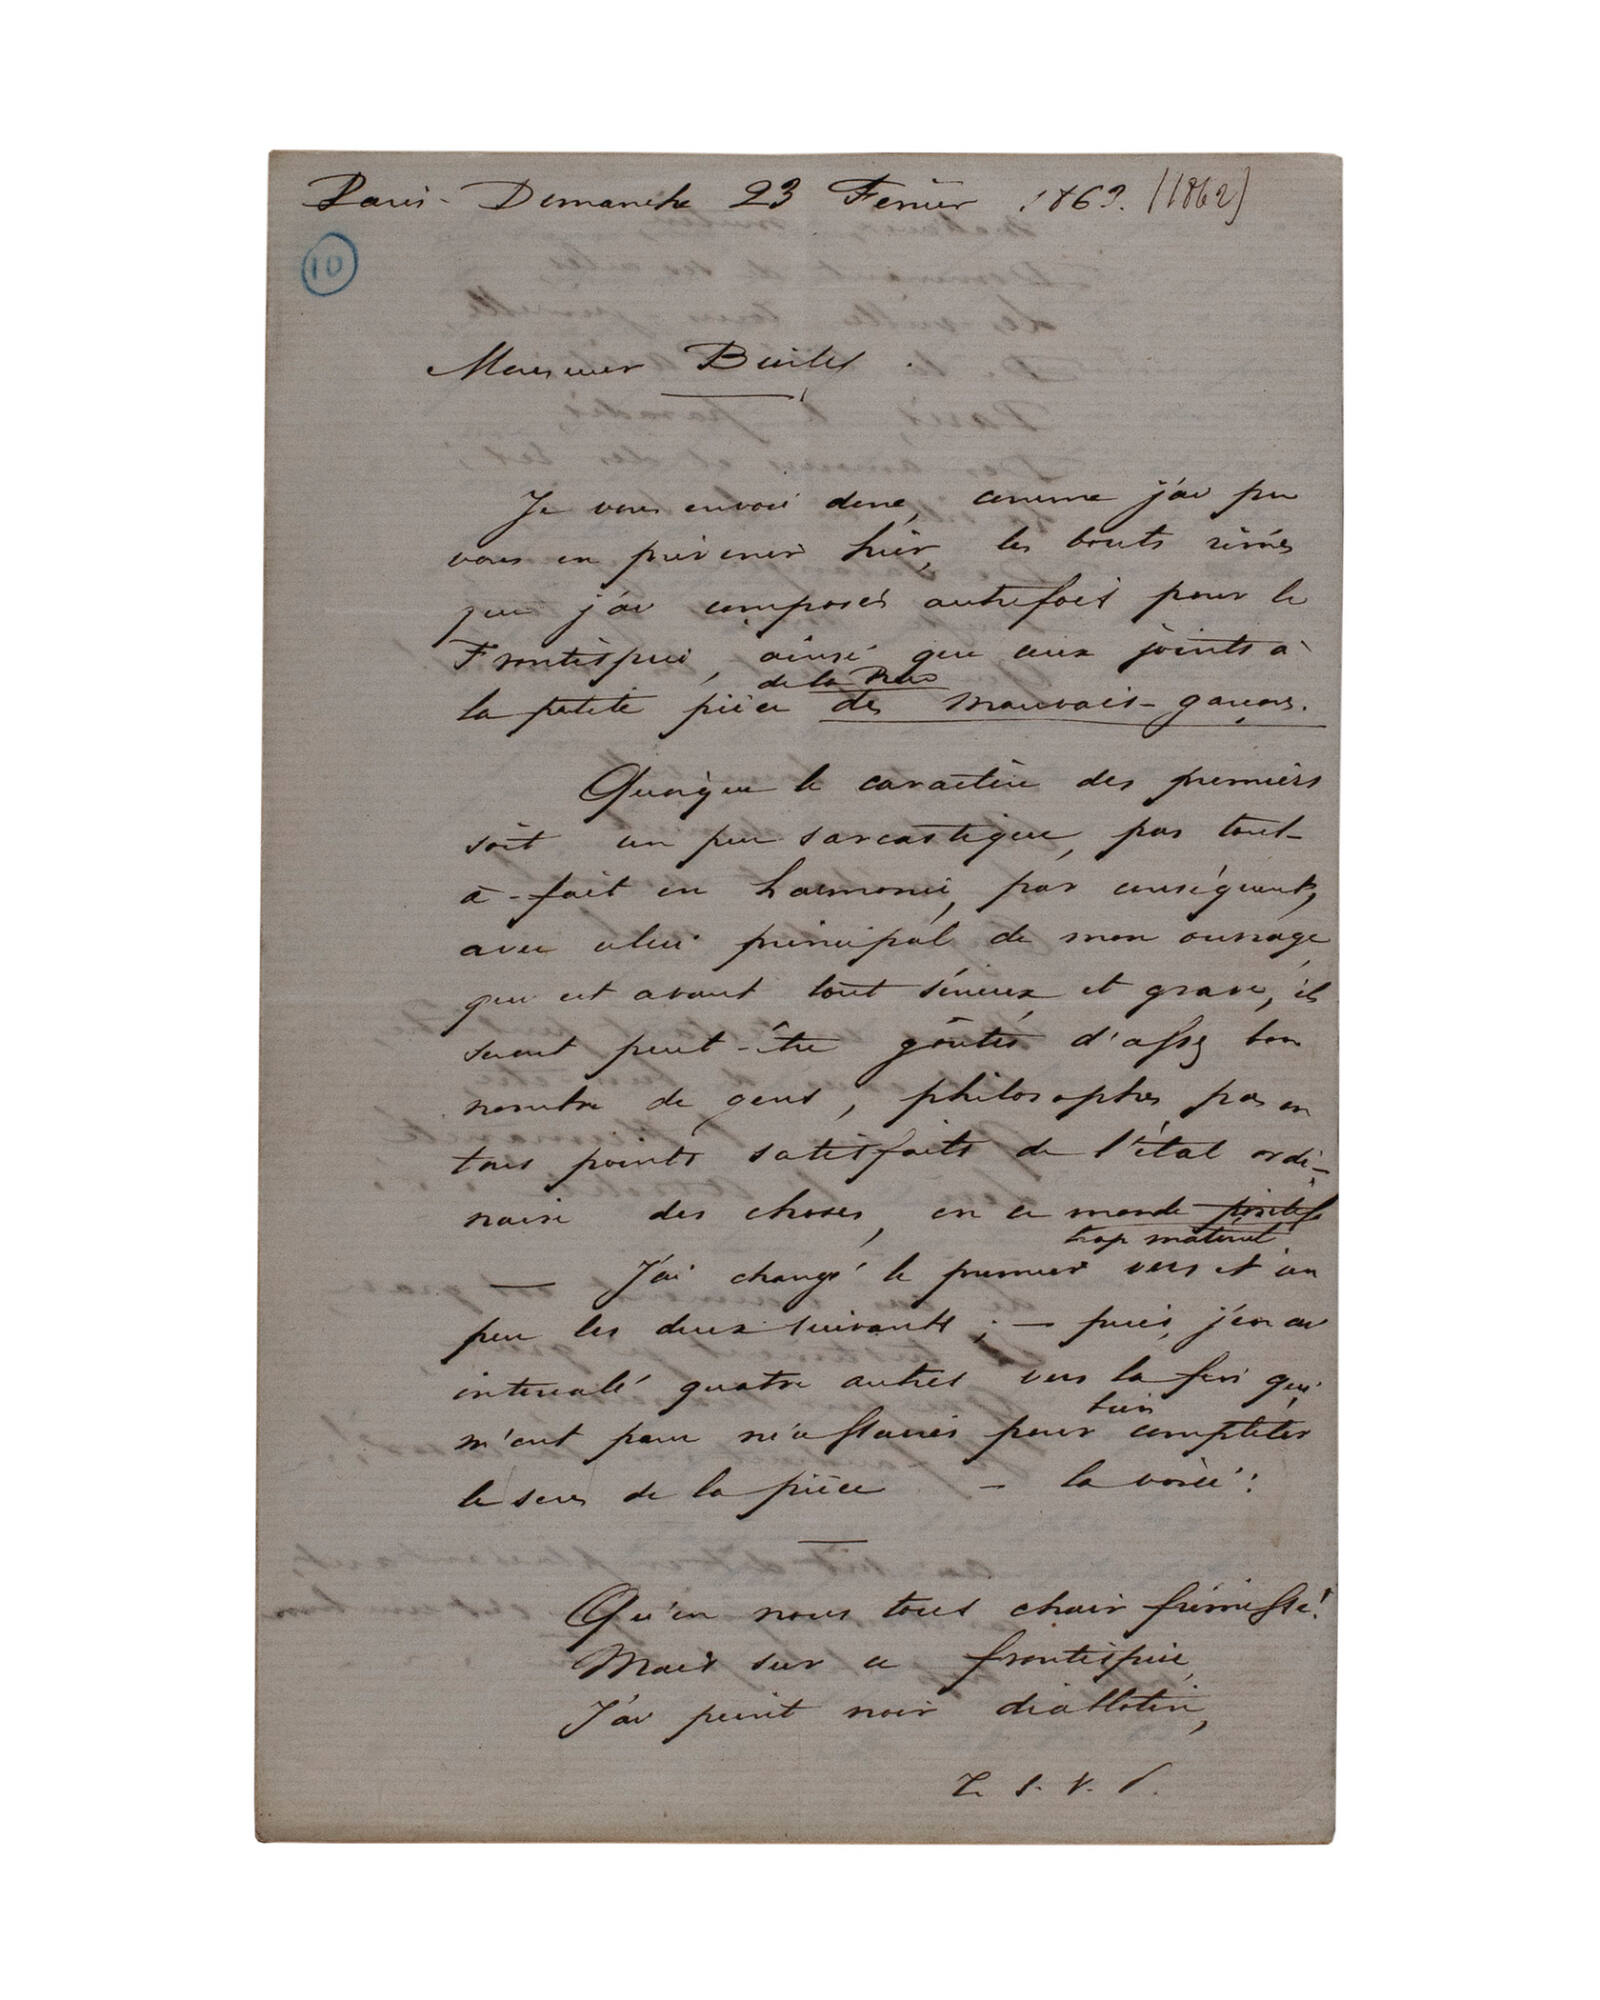 Paris - Dimanche 23 Février 1862. (1862)
10
Monsieur Burty.
Je vous envoie donc, comme j'ai pu
vous en prévenir hier, les bouts rimés
que j'ai composés autrefois pour le
Frontispice, ainsi que ceux joints à
de la Rue
la petite pièce des mauvais-garçons.
Quoique le caractère des premiers
soit un peu sarcastique, pas tout-
à-fait en harmonie, par conséquent,
avec celui principal de mon ouvrage
qui est avant tout sérieux et grave, ils
seront peut-être goûtés d'assez bon
nombre de gens, philosophes pas en
tous points satisfaits de l'état ordi-
naire des choses, en ce monde positif
trop matériel
— J'ai changé le premier vers et un
peu les deux suivants ; — puis, j'en ai
intercalé quatre autres vers la fin qui
bien
m'ont paru nécessaires pour compléter
le sens de la pièce — la voici :
Qu'en nous tous chair frémisse !
Mais sur ce frontispice,
J'ai peint noir diablotin,
T. S. V. P.